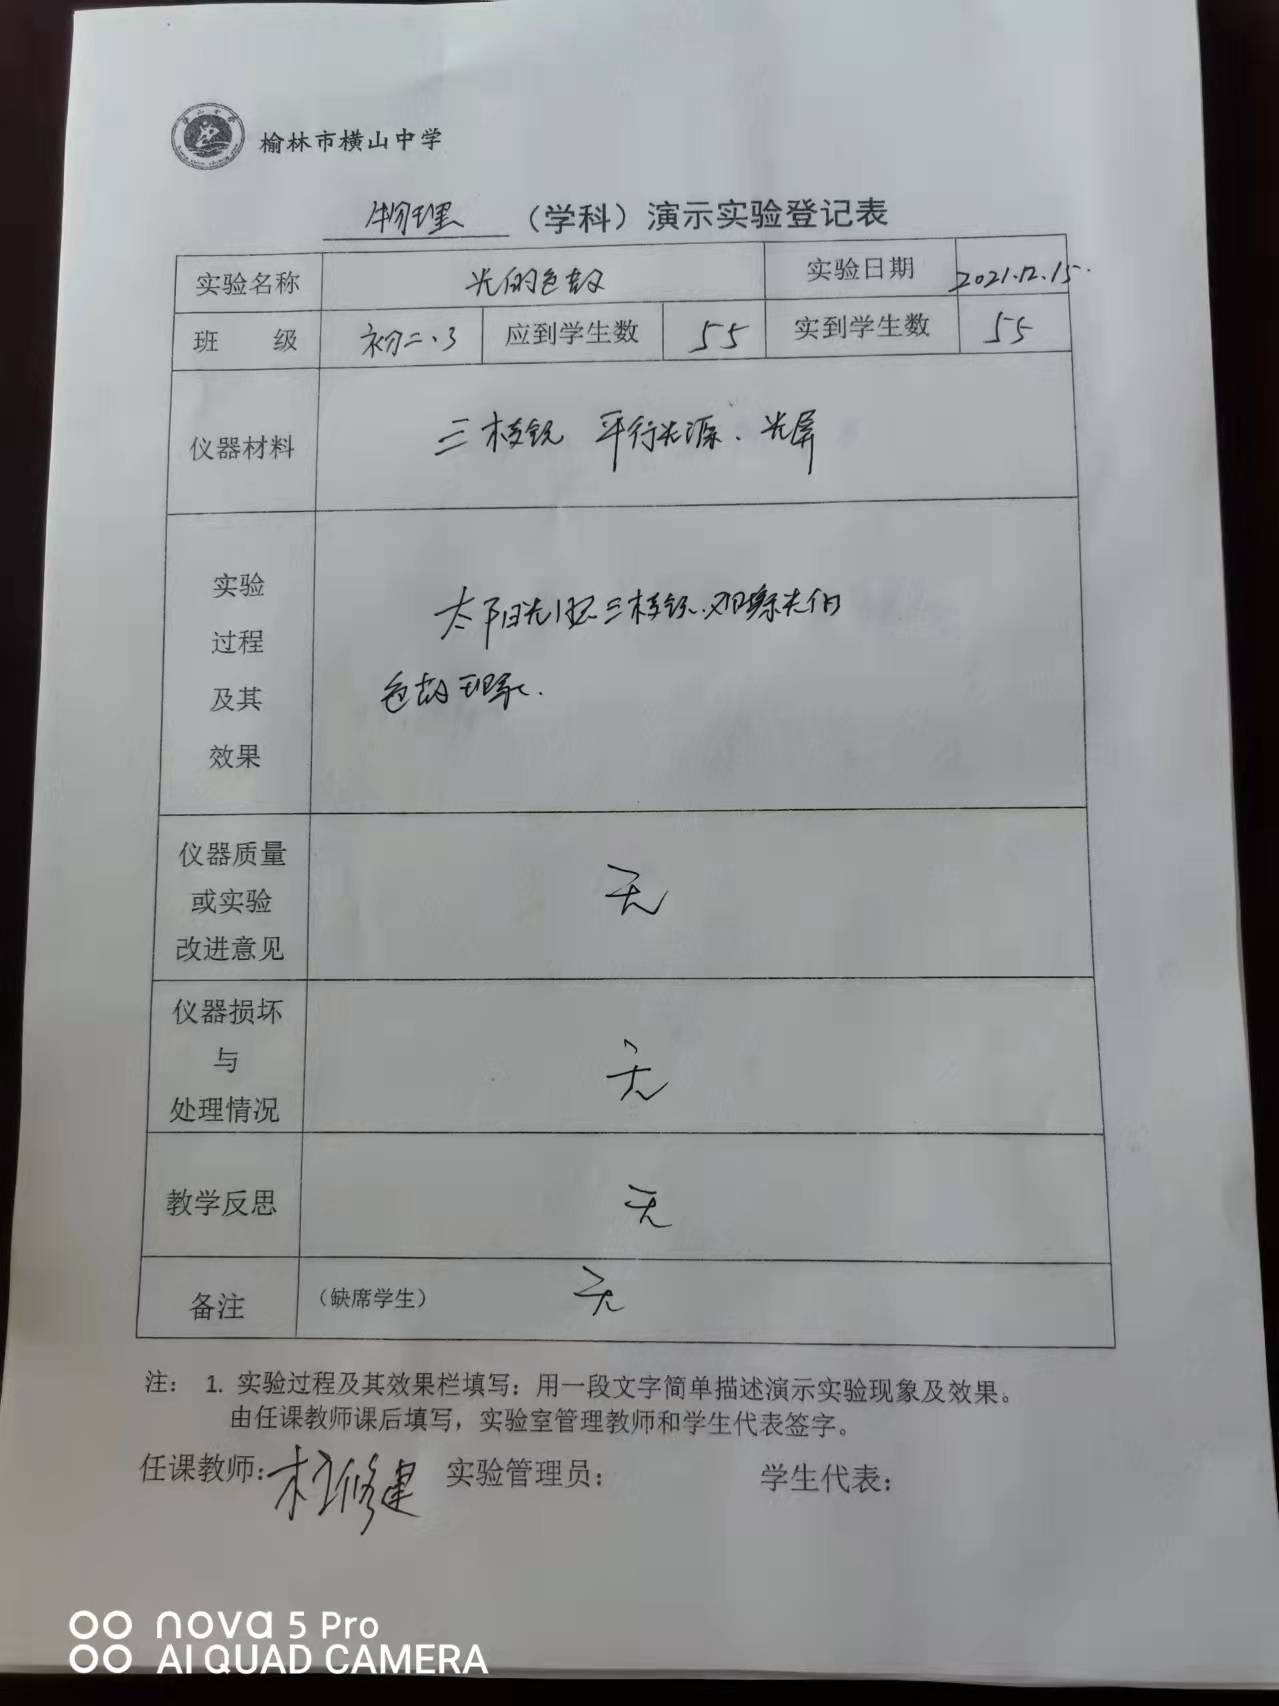 榆林市横山中学
物理 (学科)演示实验登记表
实验名称 光的色散 实验日期 2021.12.15.
班 级 初二.3 应到学生数 55 实到学生数 55
仪器材料 三棱镜 平行光源、光屏
实验
过程
及其
效果
太阳光照三棱镜.观察光的
色散现象.
仪器质量
或实验
改进意见
无
仪器损坏
与
处理情况
无
教学反思 无
备注 (缺席学生) 无
注: 1. 实验过程及其效果栏填写:用一段文字简单描述演示实验现象及效果。
由任课教师课后填写,实验室管理教师和学生代表签字。
任课教师: 修建 实验管理员: 学生代表:
nova 5 Pro
AI QUAD CAMERA